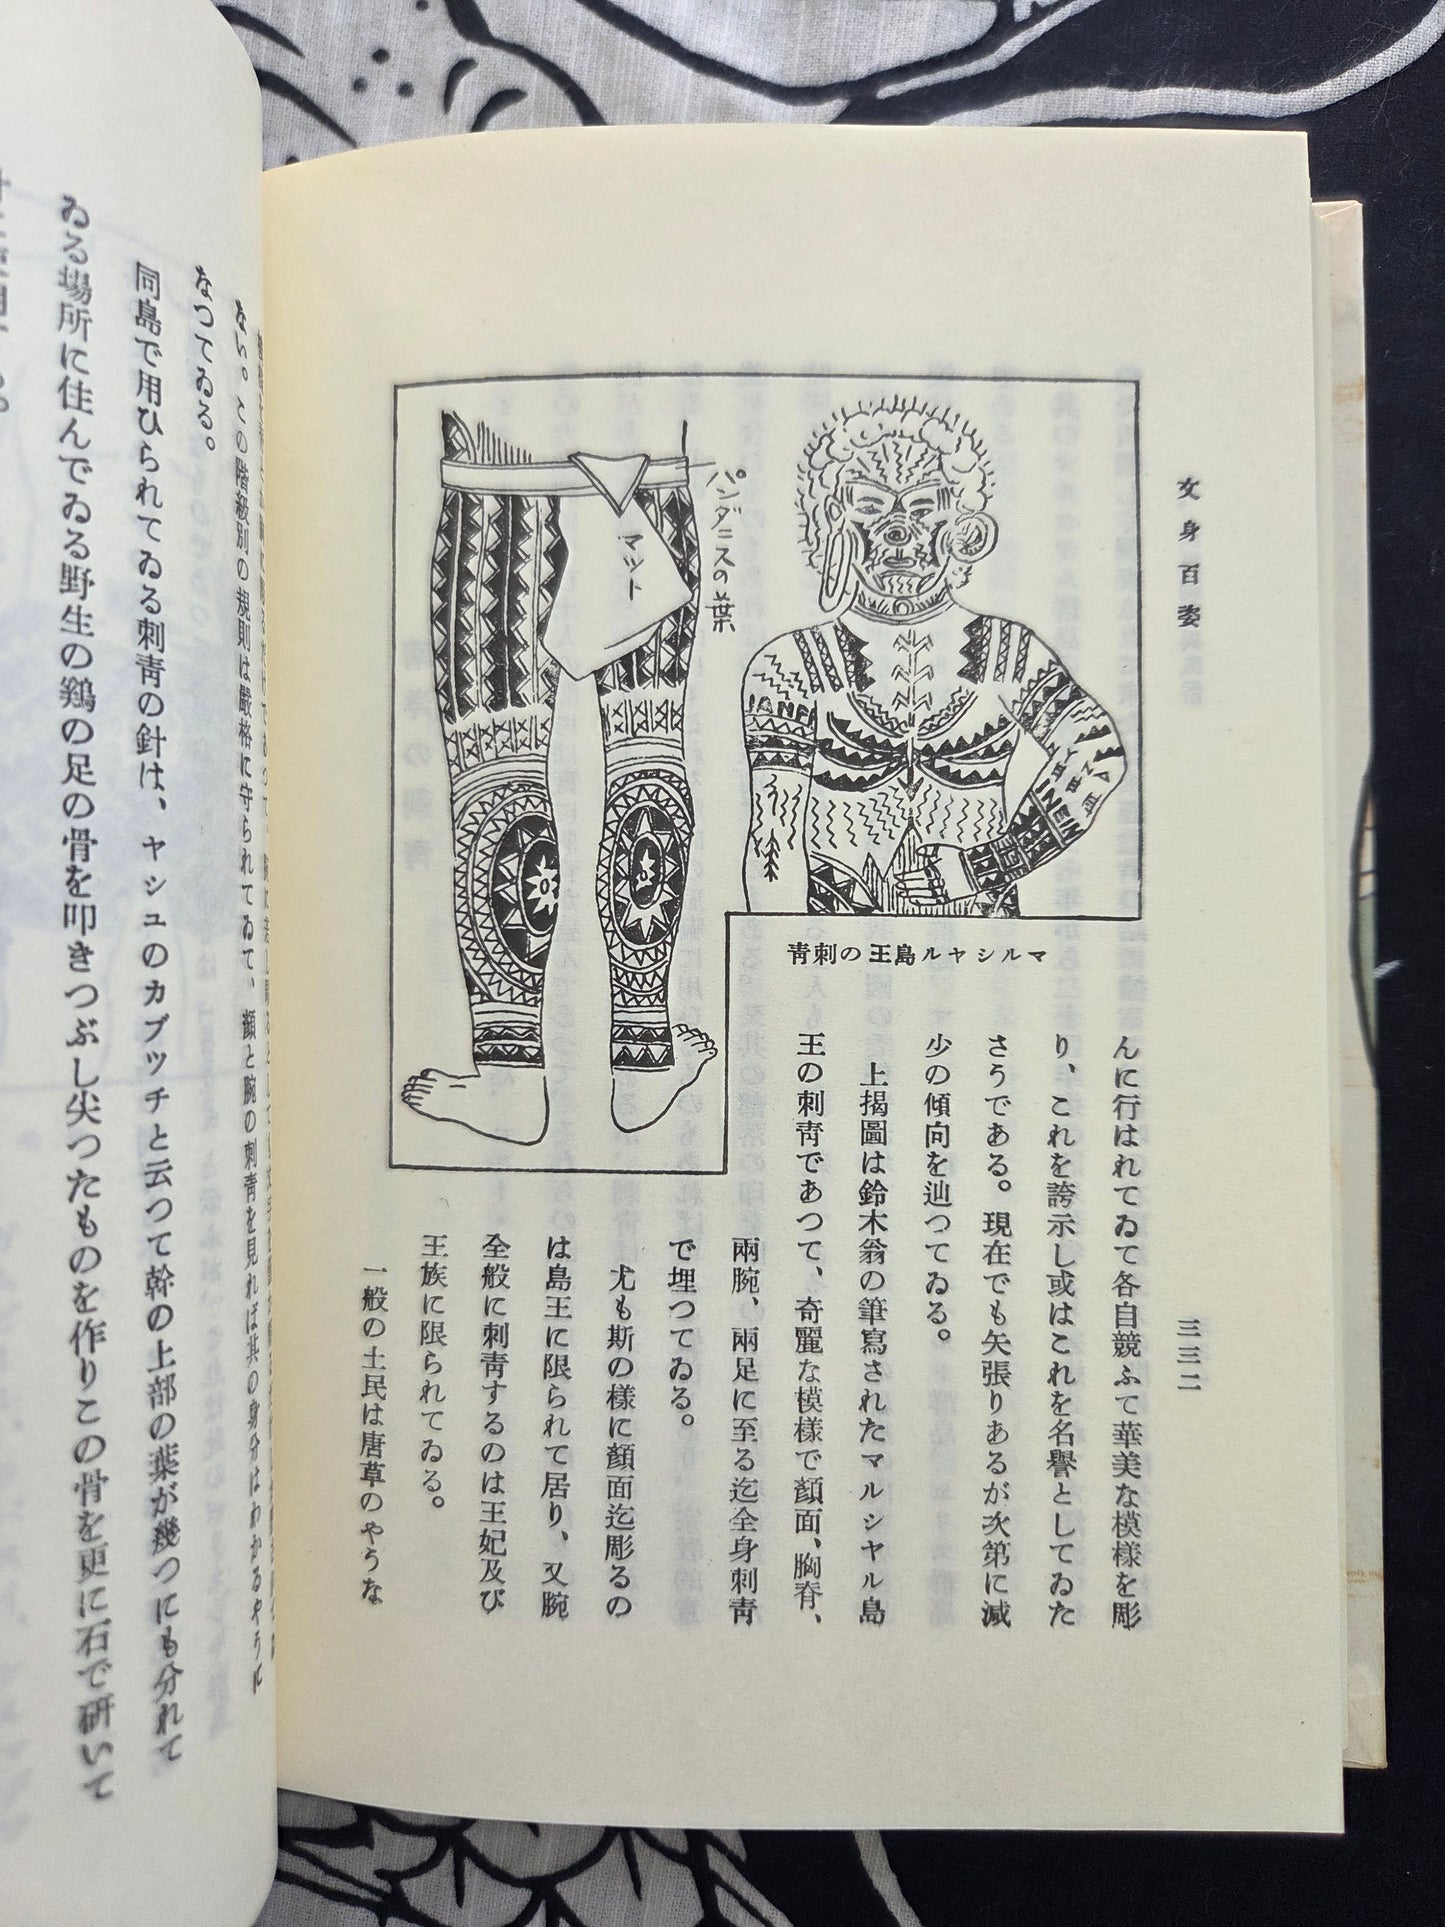 文身百姿
三三二
パンダニスの葉
マット
IANE
INEIN
マルシヤル島王の刺靑
んに行はれてゐて各自競ふて華美な模樣を彫
り、これを誇示し或はこれを名譽としてゐた
さうである。現在でも矢張りあるが次第に減
少の傾向を辿つてゐる。
上揭圖は鈴木翁の筆寫されたマルシヤル島
王の刺靑であつて、奇麗な模樣で顏面、胸脊、
兩腕、兩足に至る迄全身刺靑
で埋つてゐる。
尤も斯の樣に顏面迄彫るの
は島王に限られて居り、又腕
全般に刺靑するのは王妃及び
王族に限られてゐる。
一般の土民は唐草のやうな
ない。この階級別の規則は嚴格に守られてゐて、顏と腕の刺靑を見れば其の身分はわかるやうに
なつてゐる。
同島で用ひられてゐる刺靑の針は、ヤシュのカブツチと云つて幹の上部の葉が幾つにも分れて
ゐる場所に住んでゐる野生の鷄の足の骨を叩きつぶし尖つたものを作りこの骨を更に石で硏いて